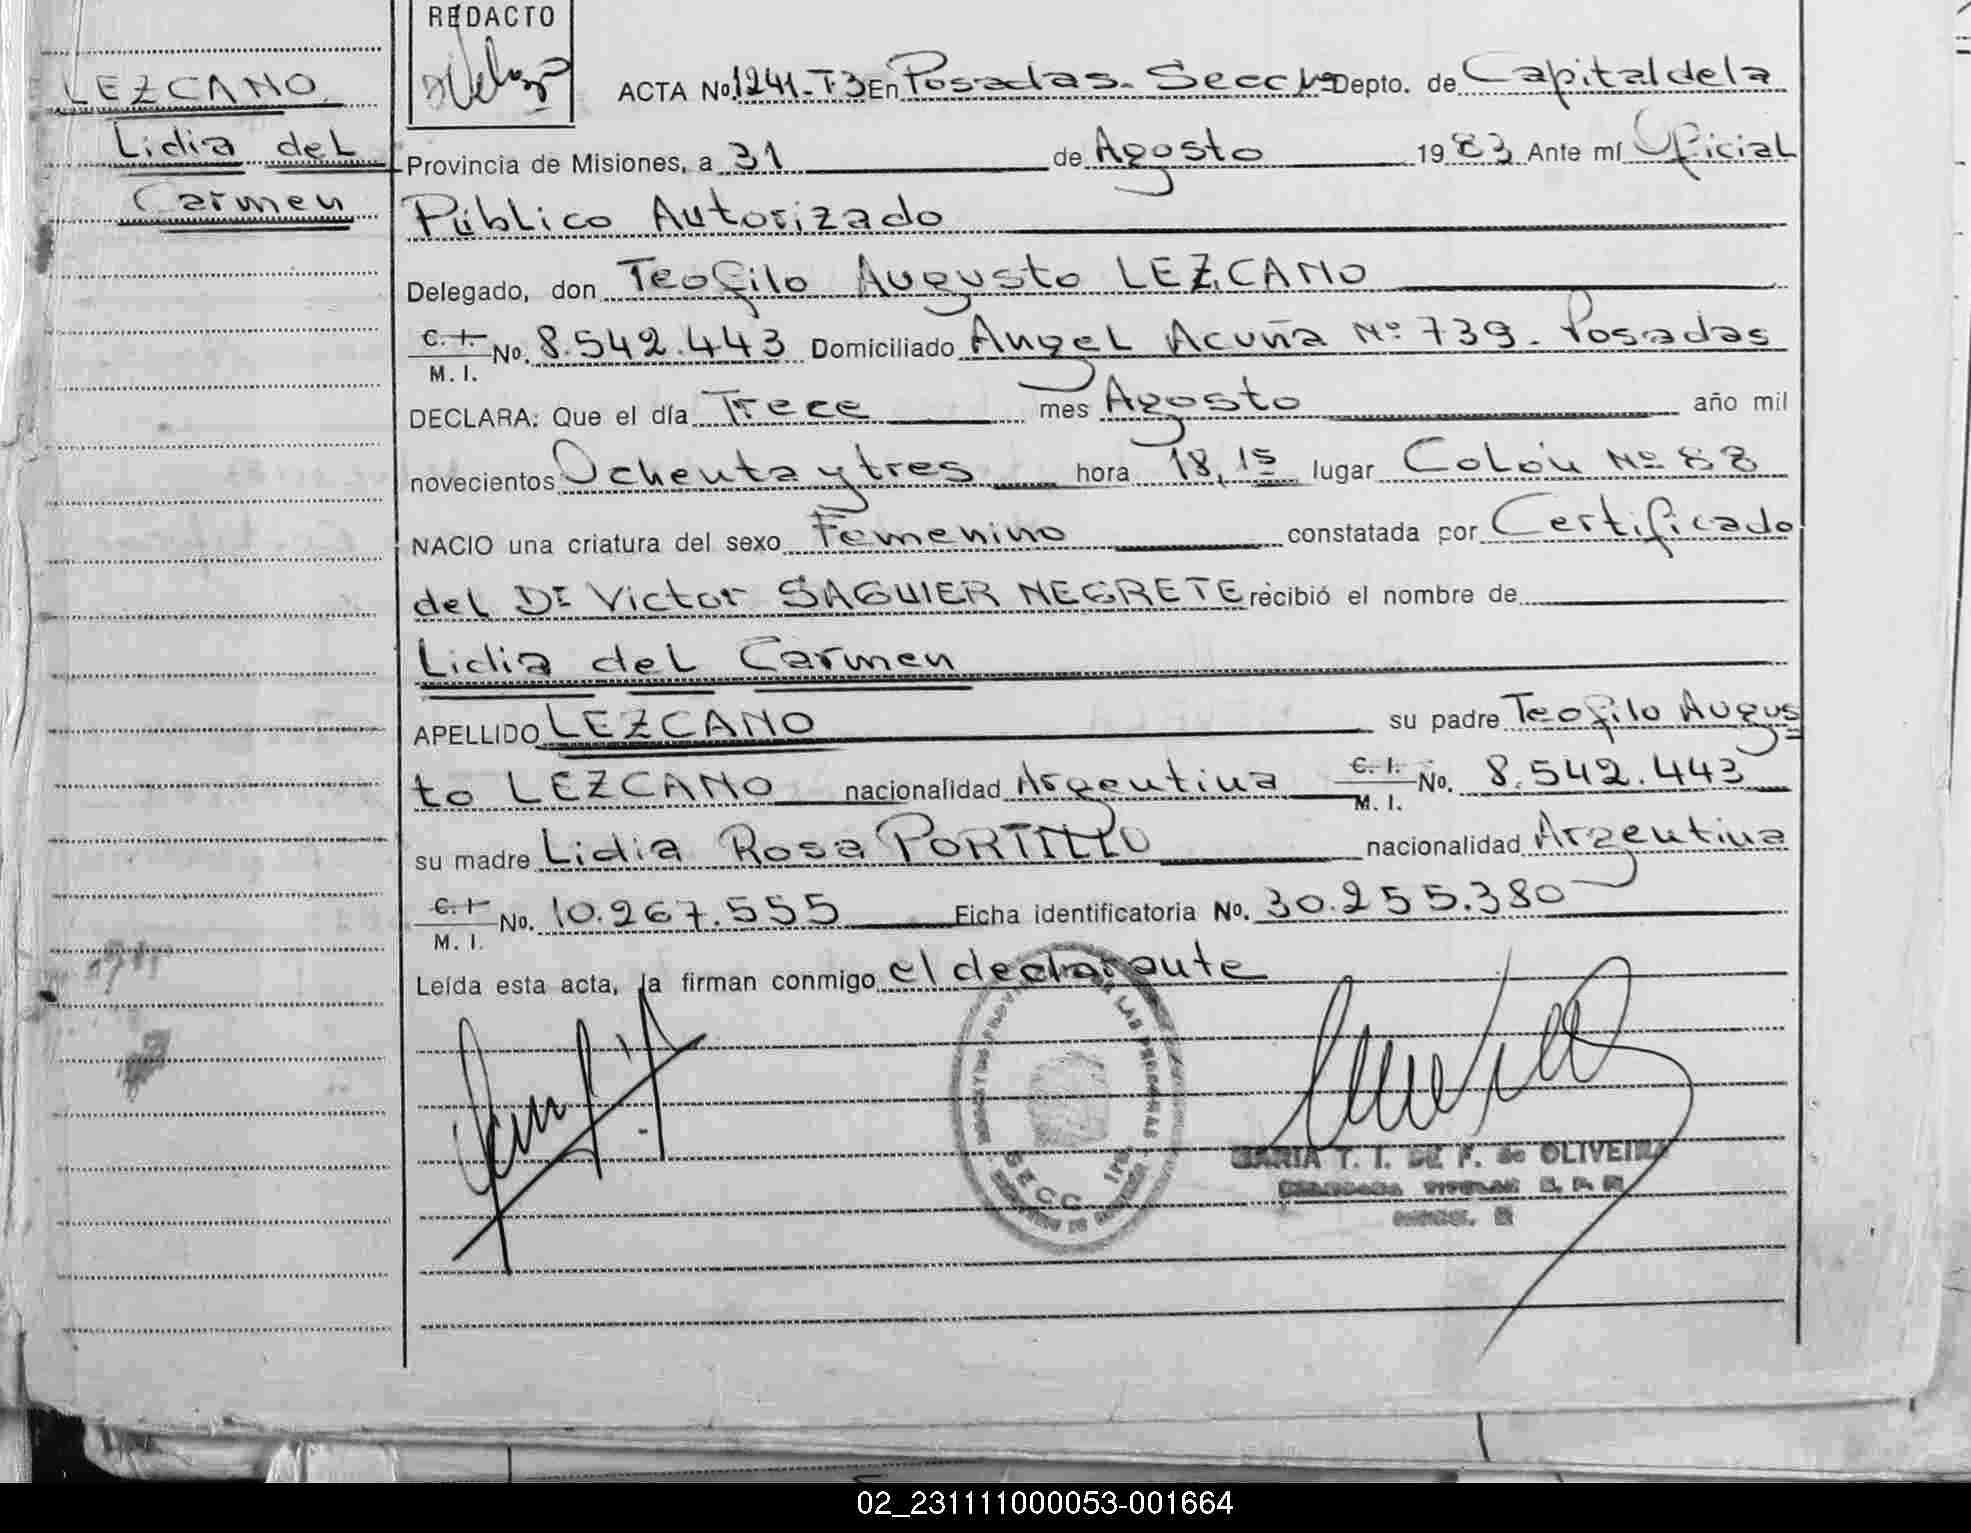 LEZCANO
Lidia del
Carmen
REDACTO
ACTA No. 1241-T3 En Posadas. Secc 1ra Depto. de Capital de la
Provincia de Misiones, a 31 de Agosto 1983 Ante mí Oficial
Público Autorizado
Delegado, don Teofilo Augusto LEZCANO
C. I. No. 8.542.443 Domiciliado Angel Acuña Nº 739. Posadas
M. I.
DECLARA: Que el día Trece mes Agosto año mil
novecientos Ochenta y tres hora 18,15 lugar Colón Nº 88
NACIO una criatura del sexo Femenino constatada por Certificado
del Dr Victor SAGUIER NEGRETE recibió el nombre de
Lidia del Carmen
APELLIDO LEZCANO su padre Teofilo Augus
to LEZCANO nacionalidad Argentina C. I. No. 8.542.443
M. I.
su madre Lidia Rosa PORTILLO nacionalidad Argentina
C. I. No. 10.267.555 Ficha identificatoria No. 30.255.380
M. I.
Leída esta acta, la firman conmigo el declarante
LAS PERSONAS
SECC. 1ra.
MARIA T. I. DE F. de OLIVEIRA
02_231111000053-001664